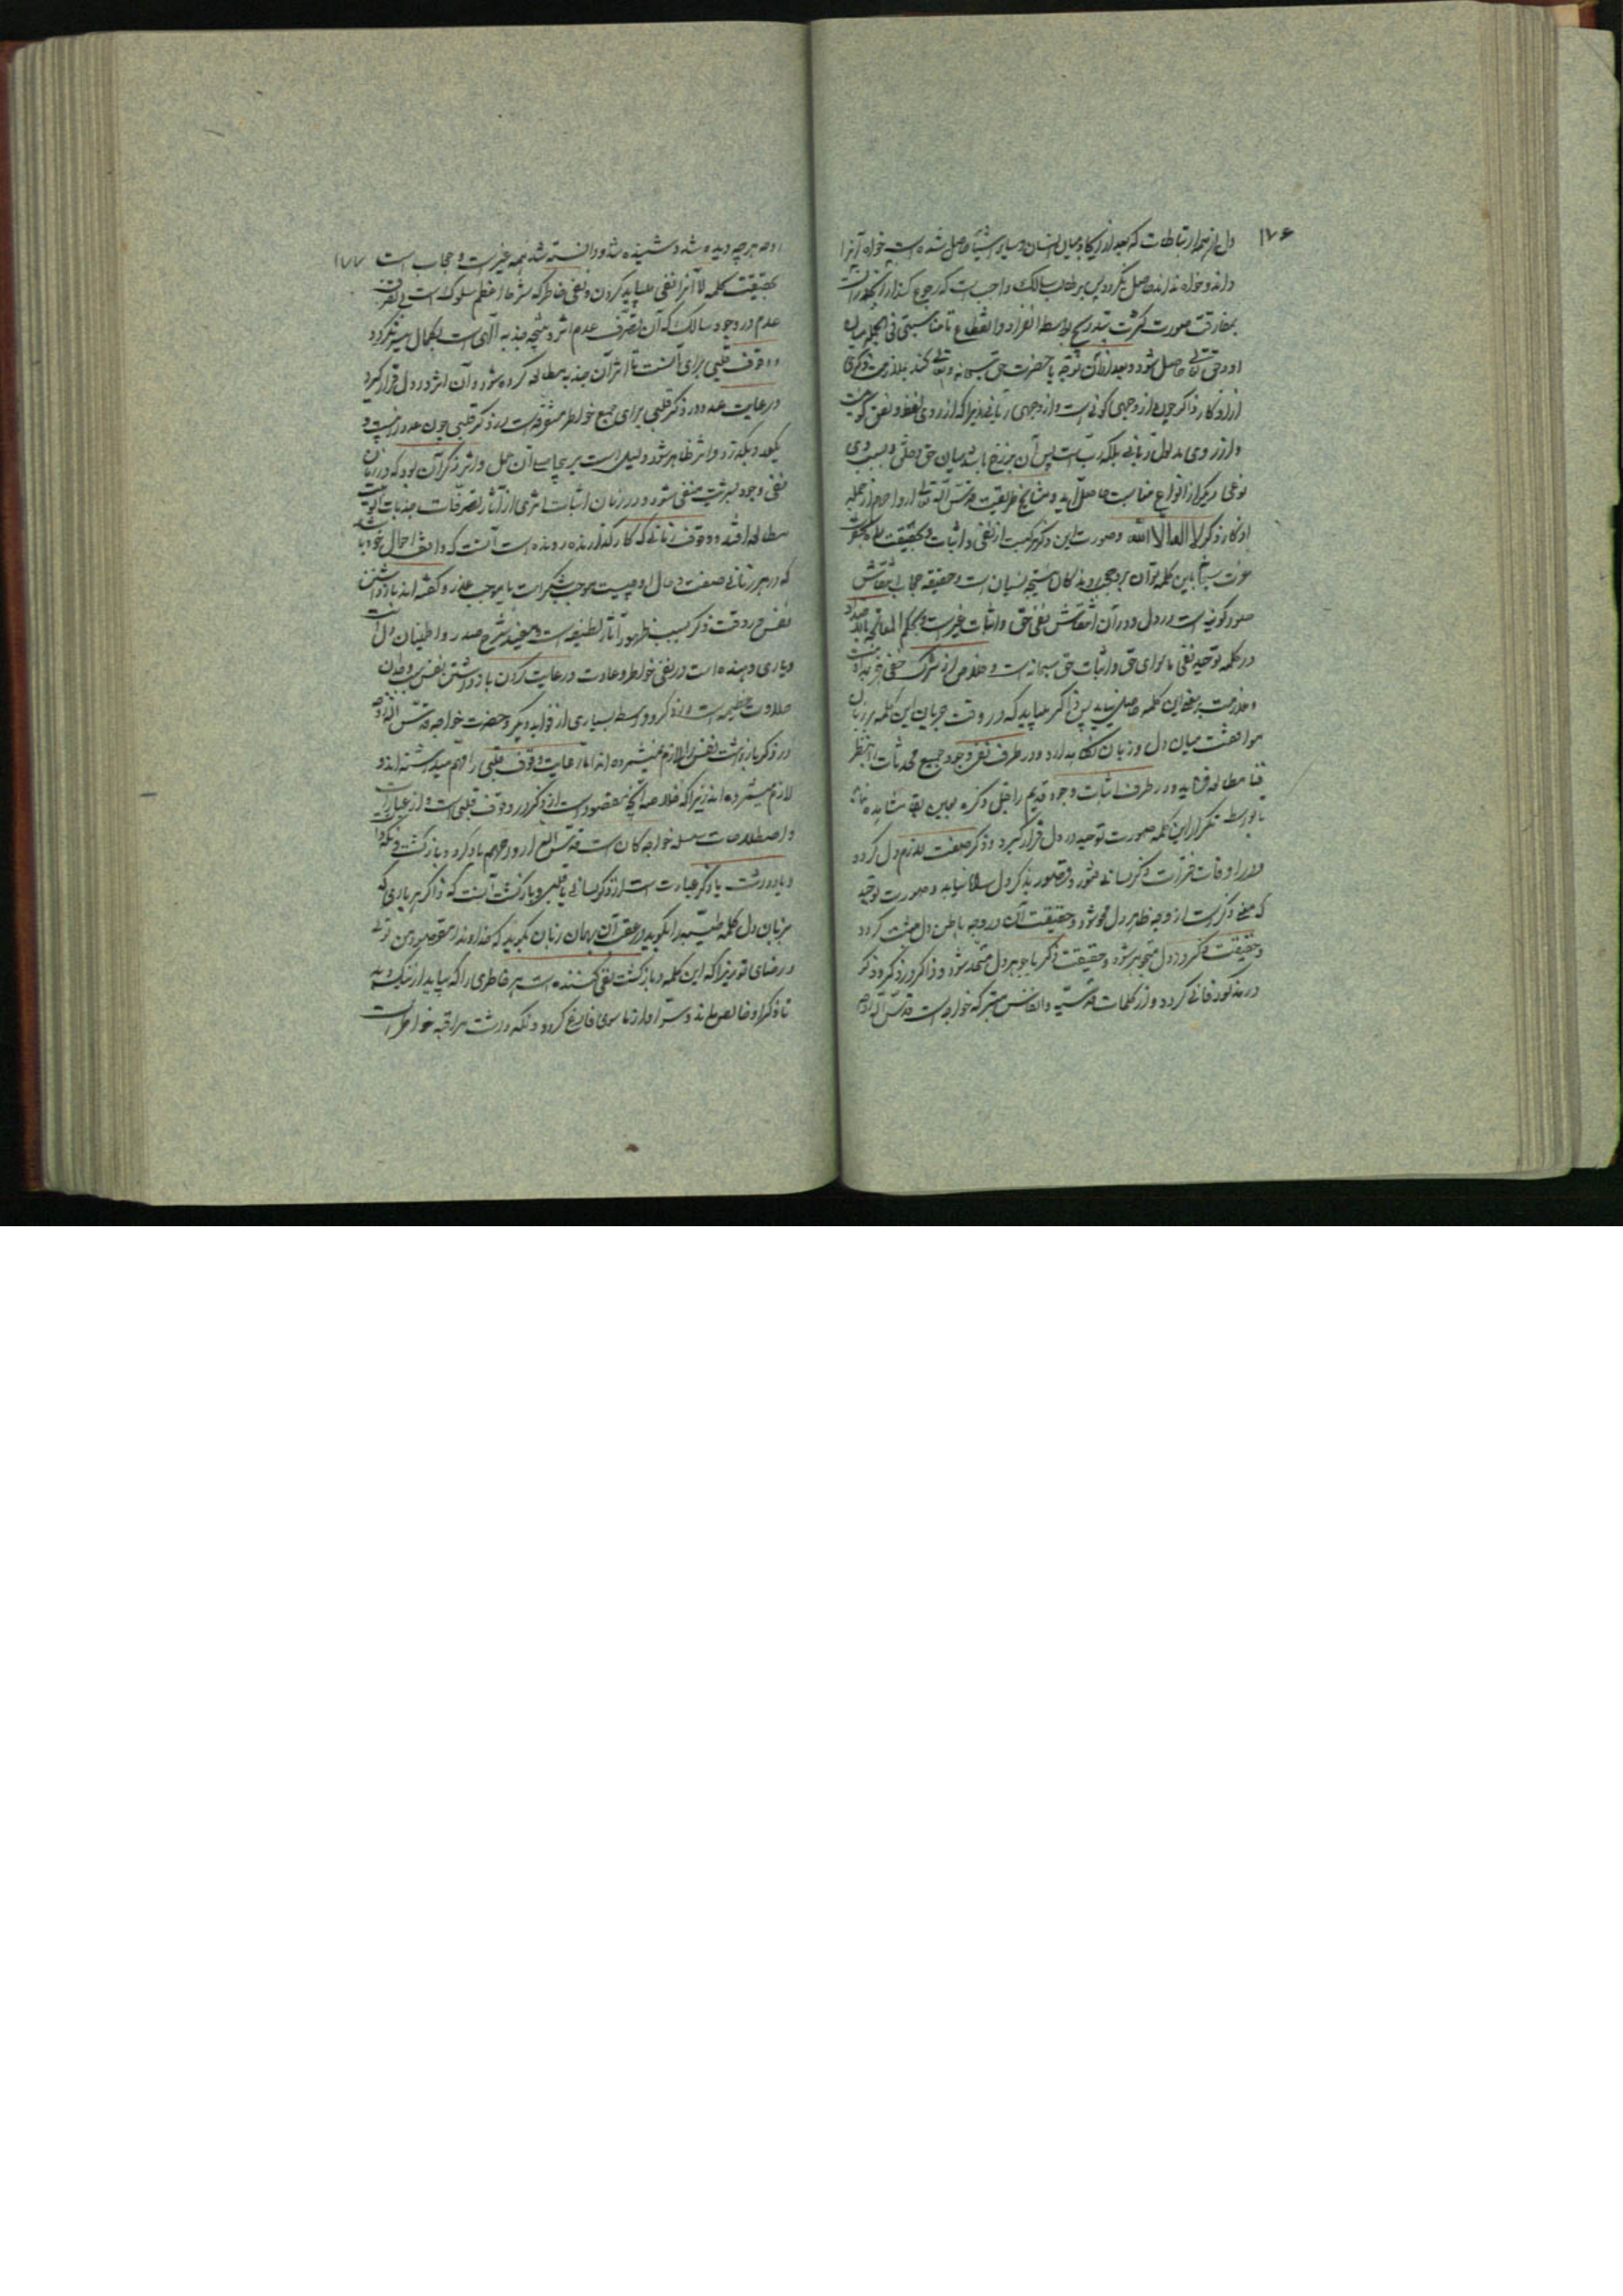 ۱۷۶
دل از همه ارتباطات که بعد از ایجاد میان انسان و سایر اشیا حاصل شده است خواه آنرا
داند و خواه نداند حاصل نگردد پس بر طالب سالک واجب است که رجوع کند از
بمفارقت صورت کثرت بتدریج بواسطه انفراد و انقطاع تا مناسبتی فی الجمله میان
او و حق تعالی حاصل شود و بعد از آن توجه با حضرت حق سبحانه و تعالی کند بملازمت ذکری
از اذکار و ذکر از وجهی کونی است و از وجهی ربانی زیرا که از روی لفظ و نطق کونیست
و از روی مدلول ربانی بلکه رب است پس آن برزخ باشد میان حق و خلق و بسبب وی
نوعی دیگر از انواع مناسبت حاصل آید و مشایخ طریقت قدس الله تعالی ارواحهم از جمله
اذکار ذکر لا اله الا الله و صورت این ذکر مرکبست از نفی و اثبات و بحقیقت راه بحضرت
عزت سبحانه باین کلمه توان برد حجب روندگان نتیجه نسیان است و حقیقت حجاب انتقاش
صور کونیه است در دل و در آن انتقاش نفی حق و اثبات غیر است و بحکم المعالجة بالاضداد
در کلمه توحید نفی ماسوای حق و اثبات حق سبحانه است و خلاص از شرک خفی جز بمداومت
و ملازمت بر معنی این کلمه حاصل نیاید پس ذاکر میباید که در وقت جریان این کلمه بر زبان
موافقت میان دل و زبان نگاه بدارد و در طرف نفی وجود جمیع محدثات را بنظر
فنا مطالعه فرماید و در طرف اثبات وجود قدیم را جل ذکره بعین بقا مشاهده نماید
تا بواسطه تکرار این کلمه صورت توحید در دل قرار گیرد و ذکر صفت لازم دل گردد
و در اوقات فترات ذکر لسانی فتور و قصور بذکر دل راه نیابد و صورت توحید
که معنی ذکر است از وجه ظاهر دل محو شود و حقیقت آن در وجه باطن دل مثبت گردد
و حقیقت ذکر در دل متجوهر شود و حقیقت ذکر با جوهر دل متحد شود و ذاکر در ذکر و ذکر
در مذکور فانی گردد و از کلمات قدسیه و انفاس متبرکه خواجه است قدس الله روحه
۱۷۷
که هر چه دیده شد و شنیده شد و دانسته شد همه غیر است و حجاب است
بحقیقت کلمه لا آنرا نفی میباید کردن و نفی خاطر که شرط اعظم سلوک است بی تصرف
عدم در وجود سالک که آن تصرف عدم اثر و نتیجه جذبه الهی است بکمال میسر نگردد
و وقوف قلبی برای آنست تا اثر آن جذبه مطالعه کرده شود و آن اثر در دل قرار گیرد
و رعایت عدد در ذکر قلبی برای جمع خواطر متفرقه است در ذکر قلبی چون عدد از بیست و
یک بگذرد و اثر ظاهر نشود دلیل است بر بیحاصلی آن عمل و اثر ذکر آن بود که در زمان
نفی وجود بشریت منفی شود و در زمان اثبات اثری از آثار تصرفات جذبات الوهیت
مطالعه افتد و وقوف زمانی که کارگذارنده رونده است آنست که واقف احوال خود باشد
که در هر زمانی صفت و حال او چیست موجب شکر است یا موجب عذر و گفته اند بازداشتن
نفس در وقت ذکر سبب ظهور آثار لطیفه است و مفید شرح صدر و اطمینان دل است
و یاری دهنده است در نفی خواطر و عادت و رعایت کردن بازداشتن نفس سبب وجدان
حلاوت عظیمه است در ذکر و واسطه بسیاری از فواید دیگر و حضرت خواجه قدس الله روحه
در ذکر بازداشت نفس را لازم نمیشمرده اند اما رعایت وقوف قلبی را مهم میداشته اند و
لازم میشمرده اند زیرا که خلاصه آنچه مقصود است از ذکر در وقوف قلبی است و از عبارات
و اصطلاحات سلسله خواجگان است قدس الله ارواحهم یادکرد و بازگشت و نگه داشت
و یادداشت یادکرد عبارت است از ذکر لسانی یا قلبی و بازگشت آنست که ذاکر هر باری که
بزبان دل کلمه طیبه را بگوید در عقب آن بهمان زبان بگوید که خداوندا مقصود من توئی
و رضای تو زیرا که این کلمه بازگشت نفی کننده است هر خاطری را که بیاید از نیک و بد
تا ذکر او خالص ماند و سر او از ماسوی فارغ گردد و نگه داشت مراقبه خواطر است